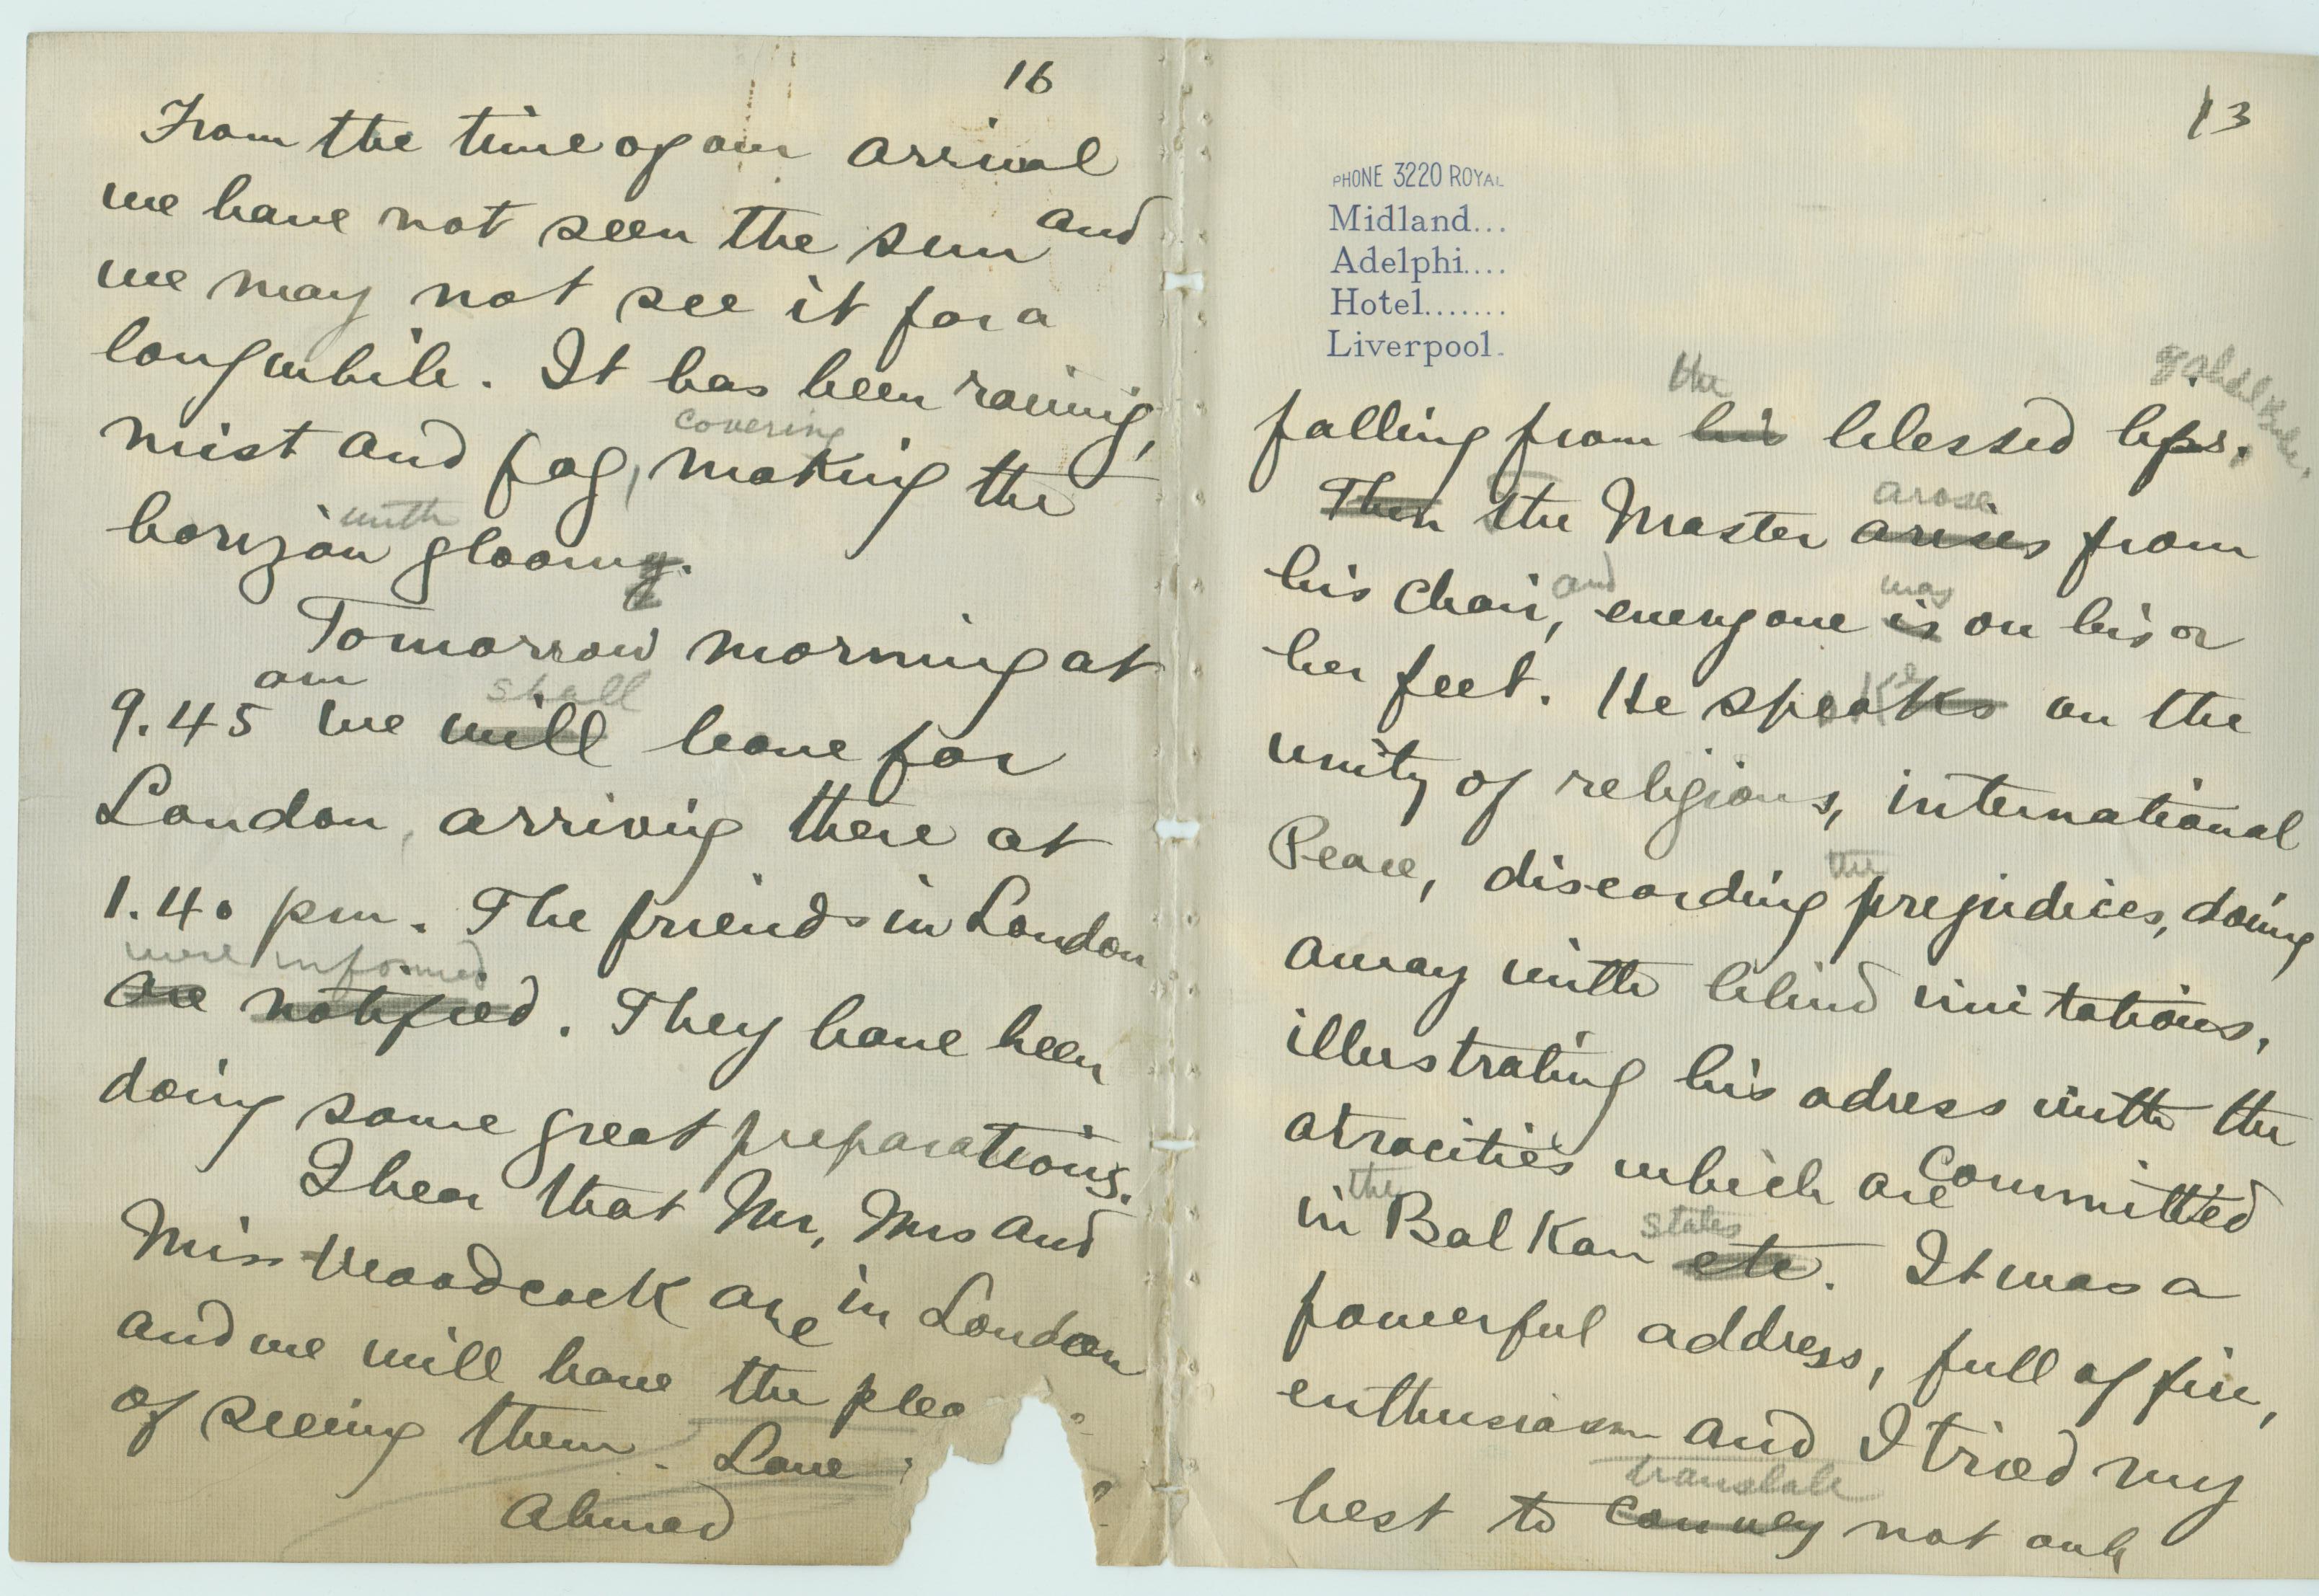 16
From the time of our arrival
we have not seen the sun and
we may not see it for a
long while. It has been raining,
covering
mist and fog, making the
with
horizon gloomy.
Tomorrow morning at
am shall
9.45 we will leave for
London, arriving there at
1.40 pm. The friends in London
were informed
are notified. They have been
doing some great preparations.
I hear that Mr, Mrs and
Miss Woodcock are in London
and we will have the plea
of seeing them. Love
Ahmad
13
PHONE 3220 ROYAL
Midland...
Adelphi....
Hotel.......
Liverpool.
the
falling from his blessed lips.
arose
Then the Master arises from
and was
his chair, everyone is on his or
ke
her feet. He speaks on the
unity of religions, international
the
Peace, discarding prejudices, doing
away with blind imitations,
illustrating his adress with the
atrocities which are committed
the states
in Balkan etc. It was a
powerful address, full of fire,
enthusiasm and I tried my
translate
best to convey not only